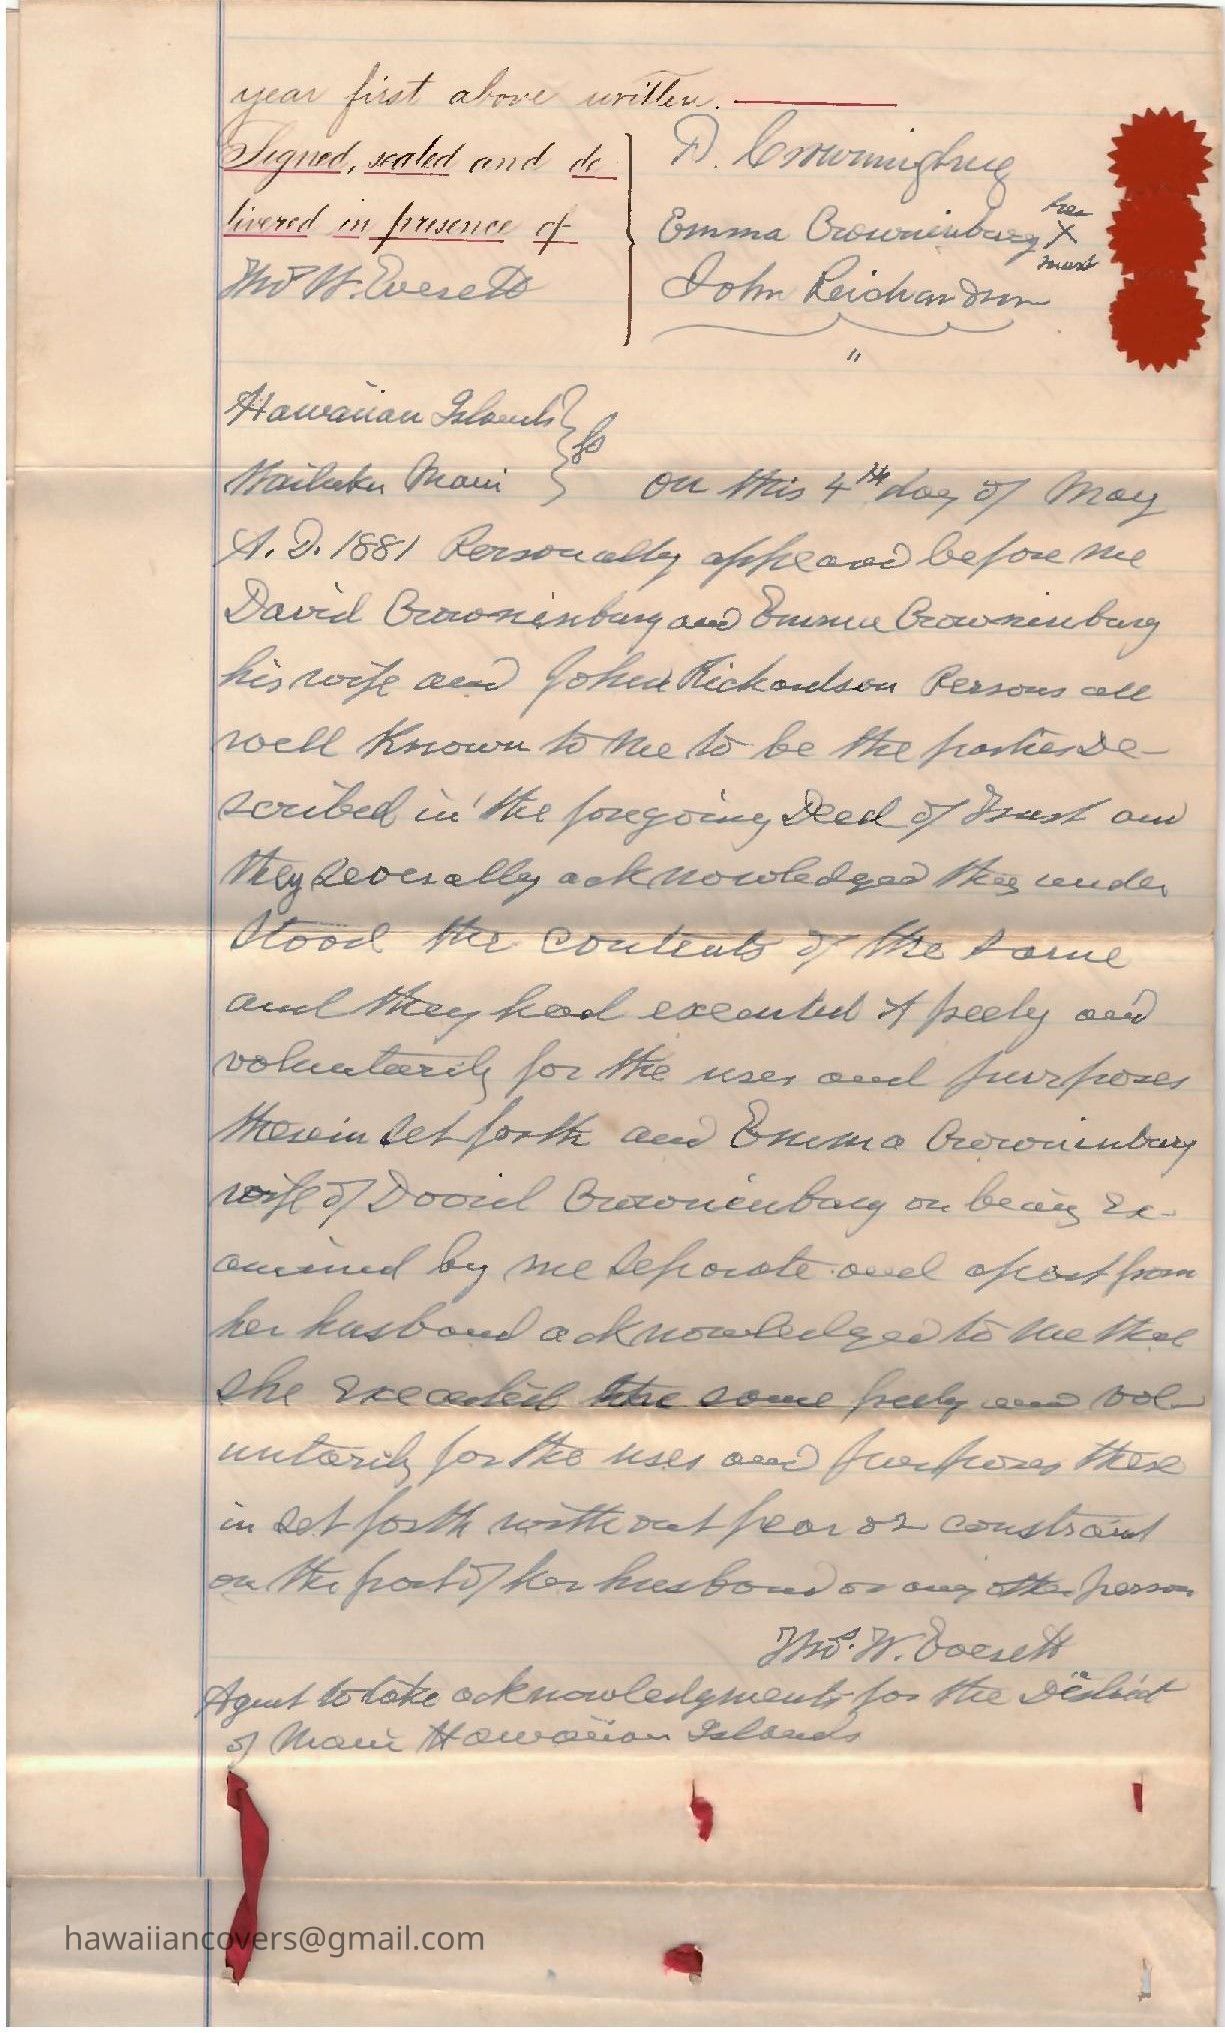 year first above written.
Signed, sealed and de
livered in presence of
Thos W. Everett
D. Crowningburg
Emma Crowninburg her X mark
John Richardson
"
Hawaiian Islands
Wailuku Maui } ss
On this 4th day of May
A. D. 1881 Personally appeared before me
David Crowninburg and Emma Crowninburg
his wife and John Richardson Persons all
well Known to me to be the parties De-
scribed in the foregoing Deed of Trust and
they severally acknowledged they under
stood the contents of the same
and they had executed it freely and
voluntarily for the uses and purposes
therein set forth and Emma Crowninburg
wife of David Crowninburg on being Ex-
amined by me separate and apart from
her husband acknowledged to me that
she Executed the same freely and vol-
untarily for the uses and purposes there
in set forth without fear or constraint
on the part of her husband or any other person
Thos. W. Everett
Agent to take acknowledgments for the District
of Maui Hawaiian Islands
hawaiiancovers@gmail.com